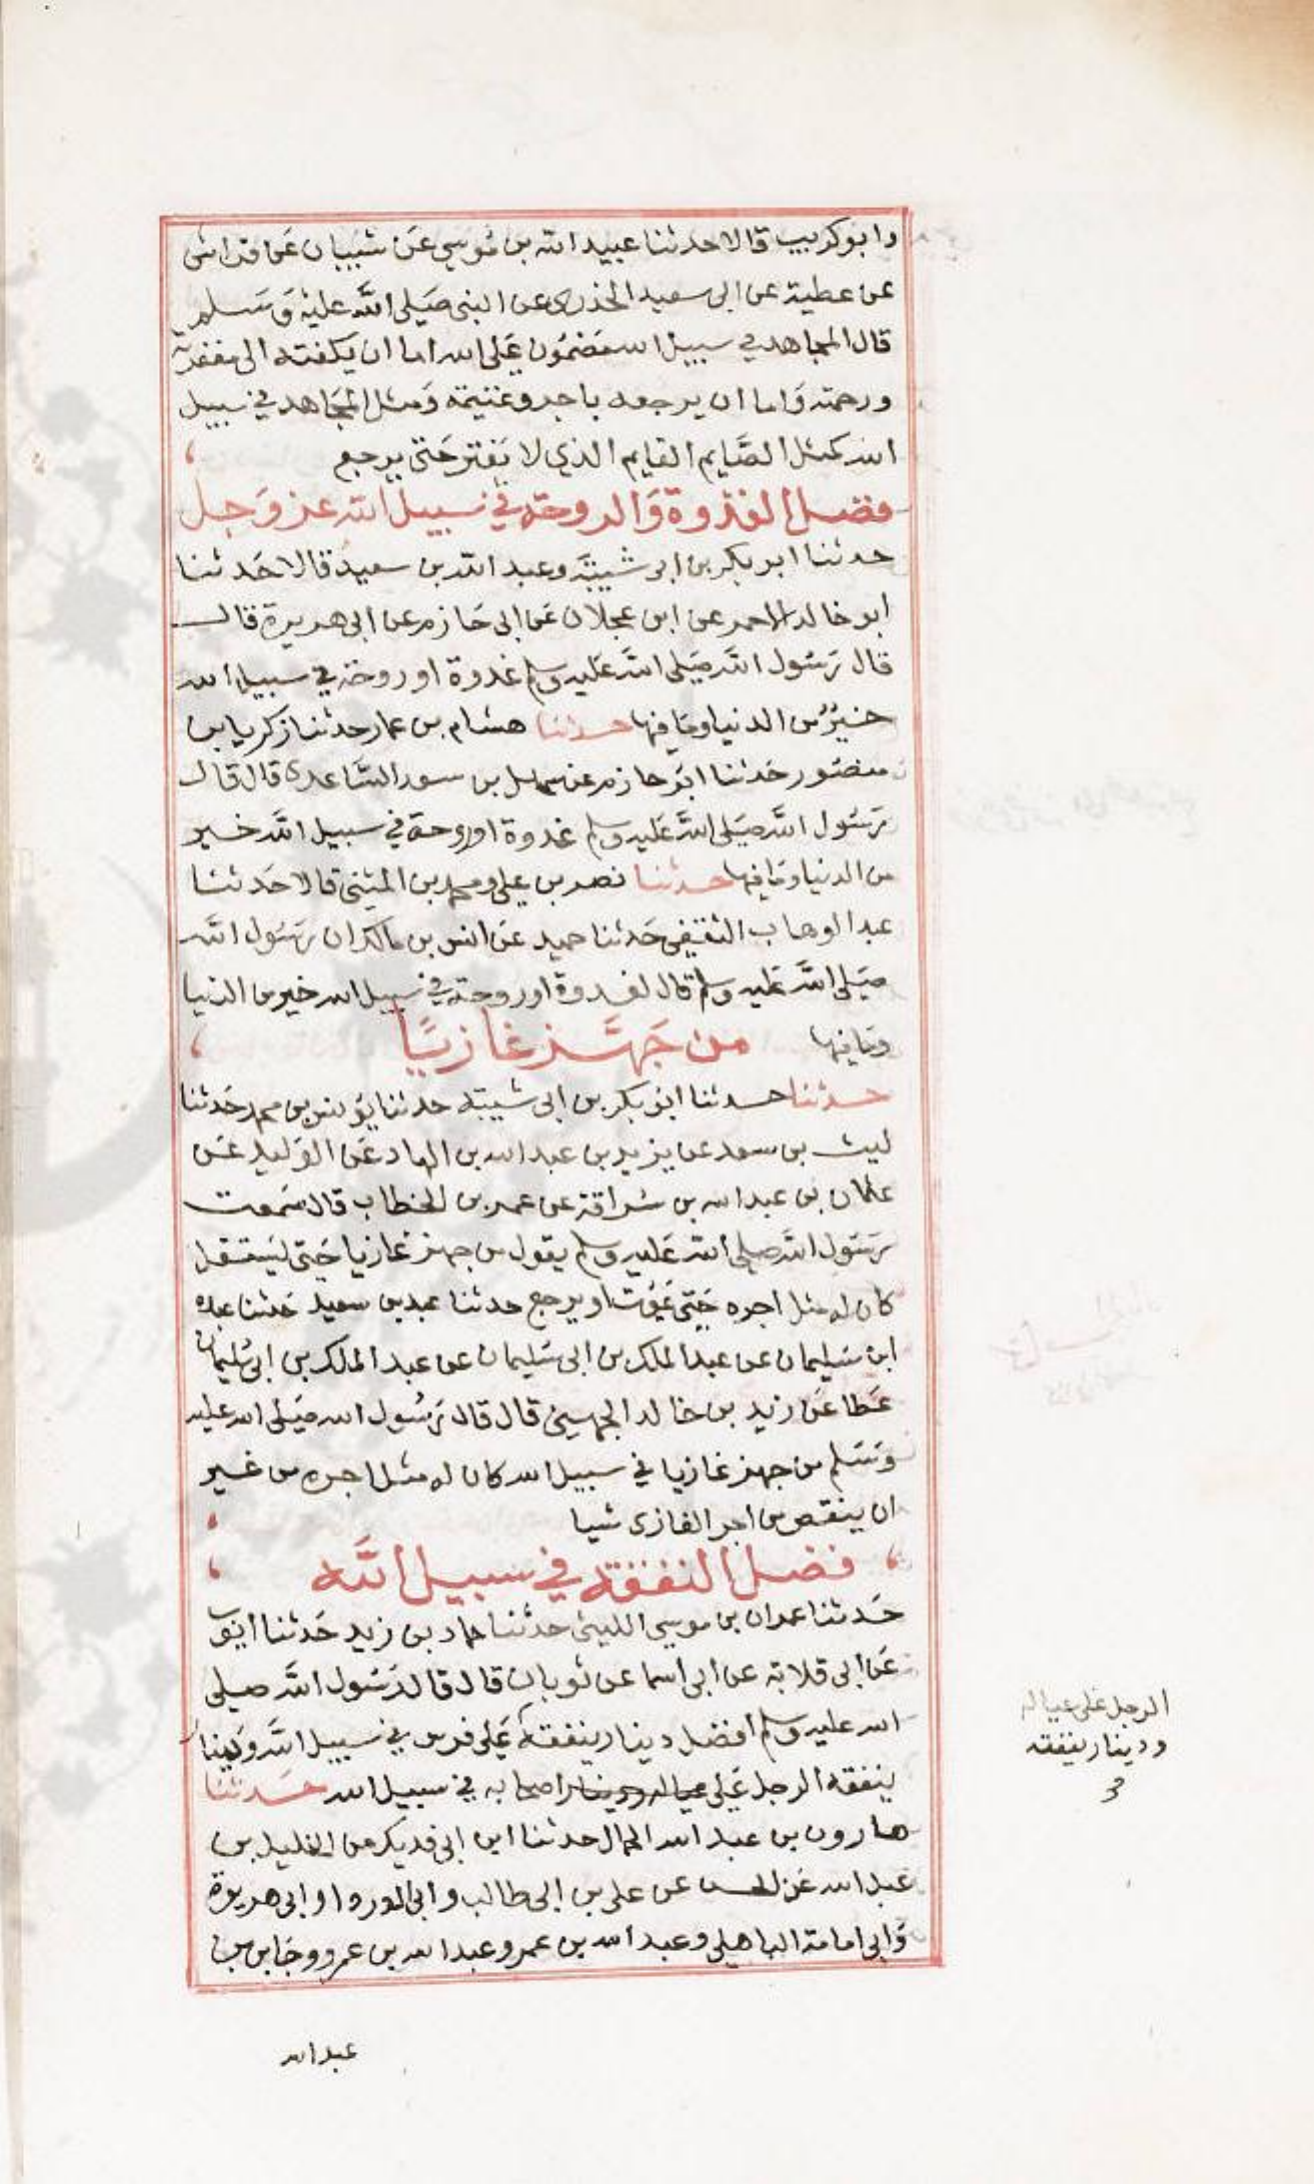 وابو كريب قالا حدثنا عبيد الله بن موسي عن شيبان عن فراس
عن عطية عن ابي سعيد الخدري عن النبي صَلي الله عليه وَسَلم
قال المجاهد في سبيل الله مَضمُون عَلي الله اما ان يكفته الى مغفرته
ورحمته وَاما ان يرجعه باجر وغنيمة وَمثل المجَاهد في سبيل
الله كمثل الصَّايم القايم الذي لا يَفتر حَتى يرجع
فضل الغدوة وَالروحة في سبيل الله عز وَجل
حدثنا ابو بكر بن ابي شيبَة وعبد الله بن سعيد قالا حَدثنا
ابو خالد الاحمر عن ابن عجلان عَن ابي حَازم عن ابي هريرة قال
قال رَسُول الله صَلي الله عَليه وسلم غدوة او روحة في سبيل الله
خيرٌ من الدنيا ومَا فيها حدثنا هشام بن عمار حدثنا زكريا بن
منصُور حَدثنا ابوُ حازم عن سهل بن سعد السَّاعدي قال قال
رَسُول الله صَلي الله عَليه وسلم غدوة او روحة في سبيل الله خير
من الدنيا ومَا فيها حدثنا نصر بن علي ومحمد بن المثني قالا حَدثنا
عبد الوهاب الثقفي حَدثنا حميد عَن انس بن مالك ان رَسُول الله
صَلي الله عَليه وسلم قال لغدوة او روحة في سبيل الله خير من الدنيا
ومَا فيها من جَهَّز غازيًا
حدثنا حدثنا ابو بكر بن ابي شيبة حدثنا يوُنس بن محمد حَدثنا
ليث بن سعد عن يزيد بن عبد الله بن الهاد عَن الوَليد عَن
عثمان بن عبد الله بن سُراقة عن عمر بن الخطاب قال سَمعت
رَسُول الله صلي الله عَليه وسلم يقول من جهز غازيا حَتى يَستقل
كان له مثل اجره حَتى يَموُت او يرجع حدثنا عبد بن سعيد حَدثنا عبده
ابن سَليمان عن عبد الملك بن ابي سَليمان عن عبد المالك بن ابي سُليمان
عَطا عَن زيد بن خالد الجهيني قال قال رَسُول الله صَلي الله عليه
وَسَلم من جهز غازيا في سبيل الله كان له مثل اجره من غير
ان ينقص من اجر الغازي شيا
فضل النفقة في سبيل الله
حَدثنا عمران بن موسي الليثي حدثنا حماد بن زيد حَدثنا ايوُب
عَن ابي قلابة عن ابي اسما عن ثوبان قال قال رَسُول الله صلي
الله عليه وسلم افضل دينار ينفقه عَلي فرس في سبيل الله وَدينار
ينفقه الرجل عَلي عياله ودينار اصحابه في سبيل الله حَدثنا
الرجل عَلي عياله
ودينار ينفقه
3
هارون بن عبد الله الحمال حدثنا ابن ابي فديك عن الخليل بن
عبد الله عَن الحسن عن علي بن ابي طالب وابي الدرداء وابي هريرة
وَابي امامة الباهلي وعبد الله بن عمر وعبد الله بن عمرو وجَابر بن
عبد الله